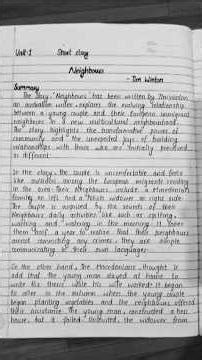 Unit-1 Short story
Neighbours
- Tim Winton
Summary
The story "Neighbours" has been written by Tim Winton
an australian writer explores the evolving relationship
between a young couple and their European immigrant
neighbours in a new multicultural neighbourhood.
The story highlights the transformative power of
community and the unexpected joys of building
relationships with those who are initially perceived
as different.
In the story, the couple is uncomfortable and feels
like outsiders among the European migrants residing
in the area. Their neighbours include a Macedonian
family on left and a Polish widower on right side.
The couple is annoyed by the sounds of their
Neighbours daily activities like such as spitting,
washing and watering in the morning. It takes
them half a year to realise that their neighbours
arent committing any crimes, they are simply
communicating in their own languages.
On the other hand, the Macedonians thought is
odd that the young man stayed at home to
write his thesis while his wife worked. It began
to alter in the autumn when the young couple
began planting vegetables and the neighbours offered
their assistance. The young man constructed a hen
house, but it failed. the widower from